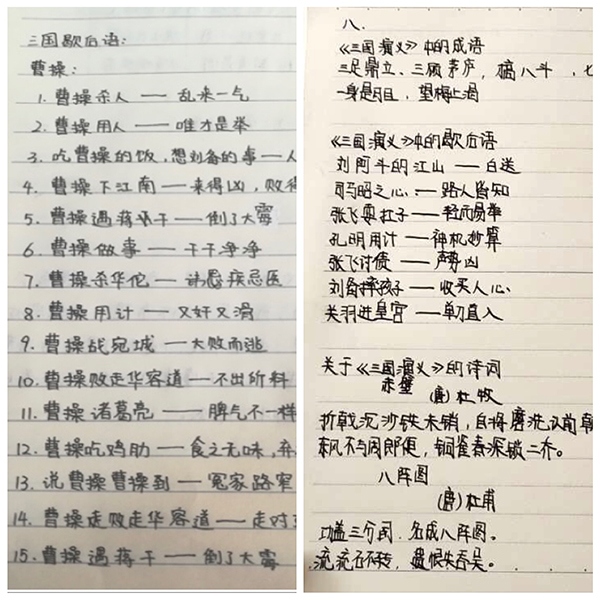 三国歇后语:
曹操:
1. 曹操杀人 —— 乱来一气
2. 曹操用人 —— 唯才是举
3. 吃曹操的饭,想刘备的事——人
4. 曹操下江南——来得凶,败得
5. 曹操遇蒋干——倒了大霉
6. 曹操做事——干干净净
7. 曹操杀华佗——讳疾忌医
8. 曹操用计——又奸又滑
9. 曹操战宛城——大败而逃
10. 曹操败走华容道——不出所料
11. 曹操诸葛亮——脾气不一样
12. 曹操吃鸡肋——食之无味,弃
13. 说曹操曹操到——冤家路窄
14. 曹操走败走华容道——走对
15. 曹操遇蒋干——倒了大霉
八.
《三国演义》中的成语
三足鼎立、三顾茅庐,才高八斗,七
一身是胆,望梅止渴
《三国演义》中的歇后语
刘阿斗的江山——白送
司马昭之心——路人皆知
张飞耍杠子——轻而易举
孔明用计——神机妙算
张飞讨债——声势凶
刘备摔孩子——收买人心
关羽进皇宫——单刀直入
关于《三国演义》的诗词
赤壁
(唐)杜牧
折戟沉沙铁未销,自将磨洗认前朝
东风不与周郎便,铜雀春深锁二乔。
八阵图
(唐)杜甫
功盖三分国,名成八阵图。
江流石不转,遗恨失吞吴。